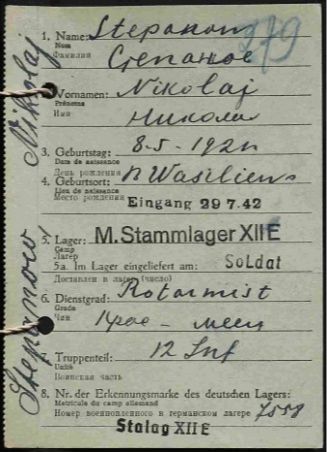 379
1. Name: Stepanow
Nom
Фамилия Степанов
Vornamen: Nikolaj
Prénoms
Имя Николай
3. Geburtstag: 8-5-192
Date de naissance
День рождения
4. Geburtsort:
Lieu de naissance
Место рождения Eingang 29 7.42
5. Lager: M.Stammlager XII E
Camp
Лагер
5a. Im Lager eingeliefert am: Soldat
Доставлен в лагер (число)
6. Dienstgrad: Rotarmist
Grade
Чин
7. Truppenteil: 12 Inf
Unité
Воинская часть
8. Nr. der Erkennungsmarke des deutschen Lagers:
Matricule du camp allemand
Номер военнопленного в германском лагере 7558
Stalag XII E
Stepanow, Nikolaj